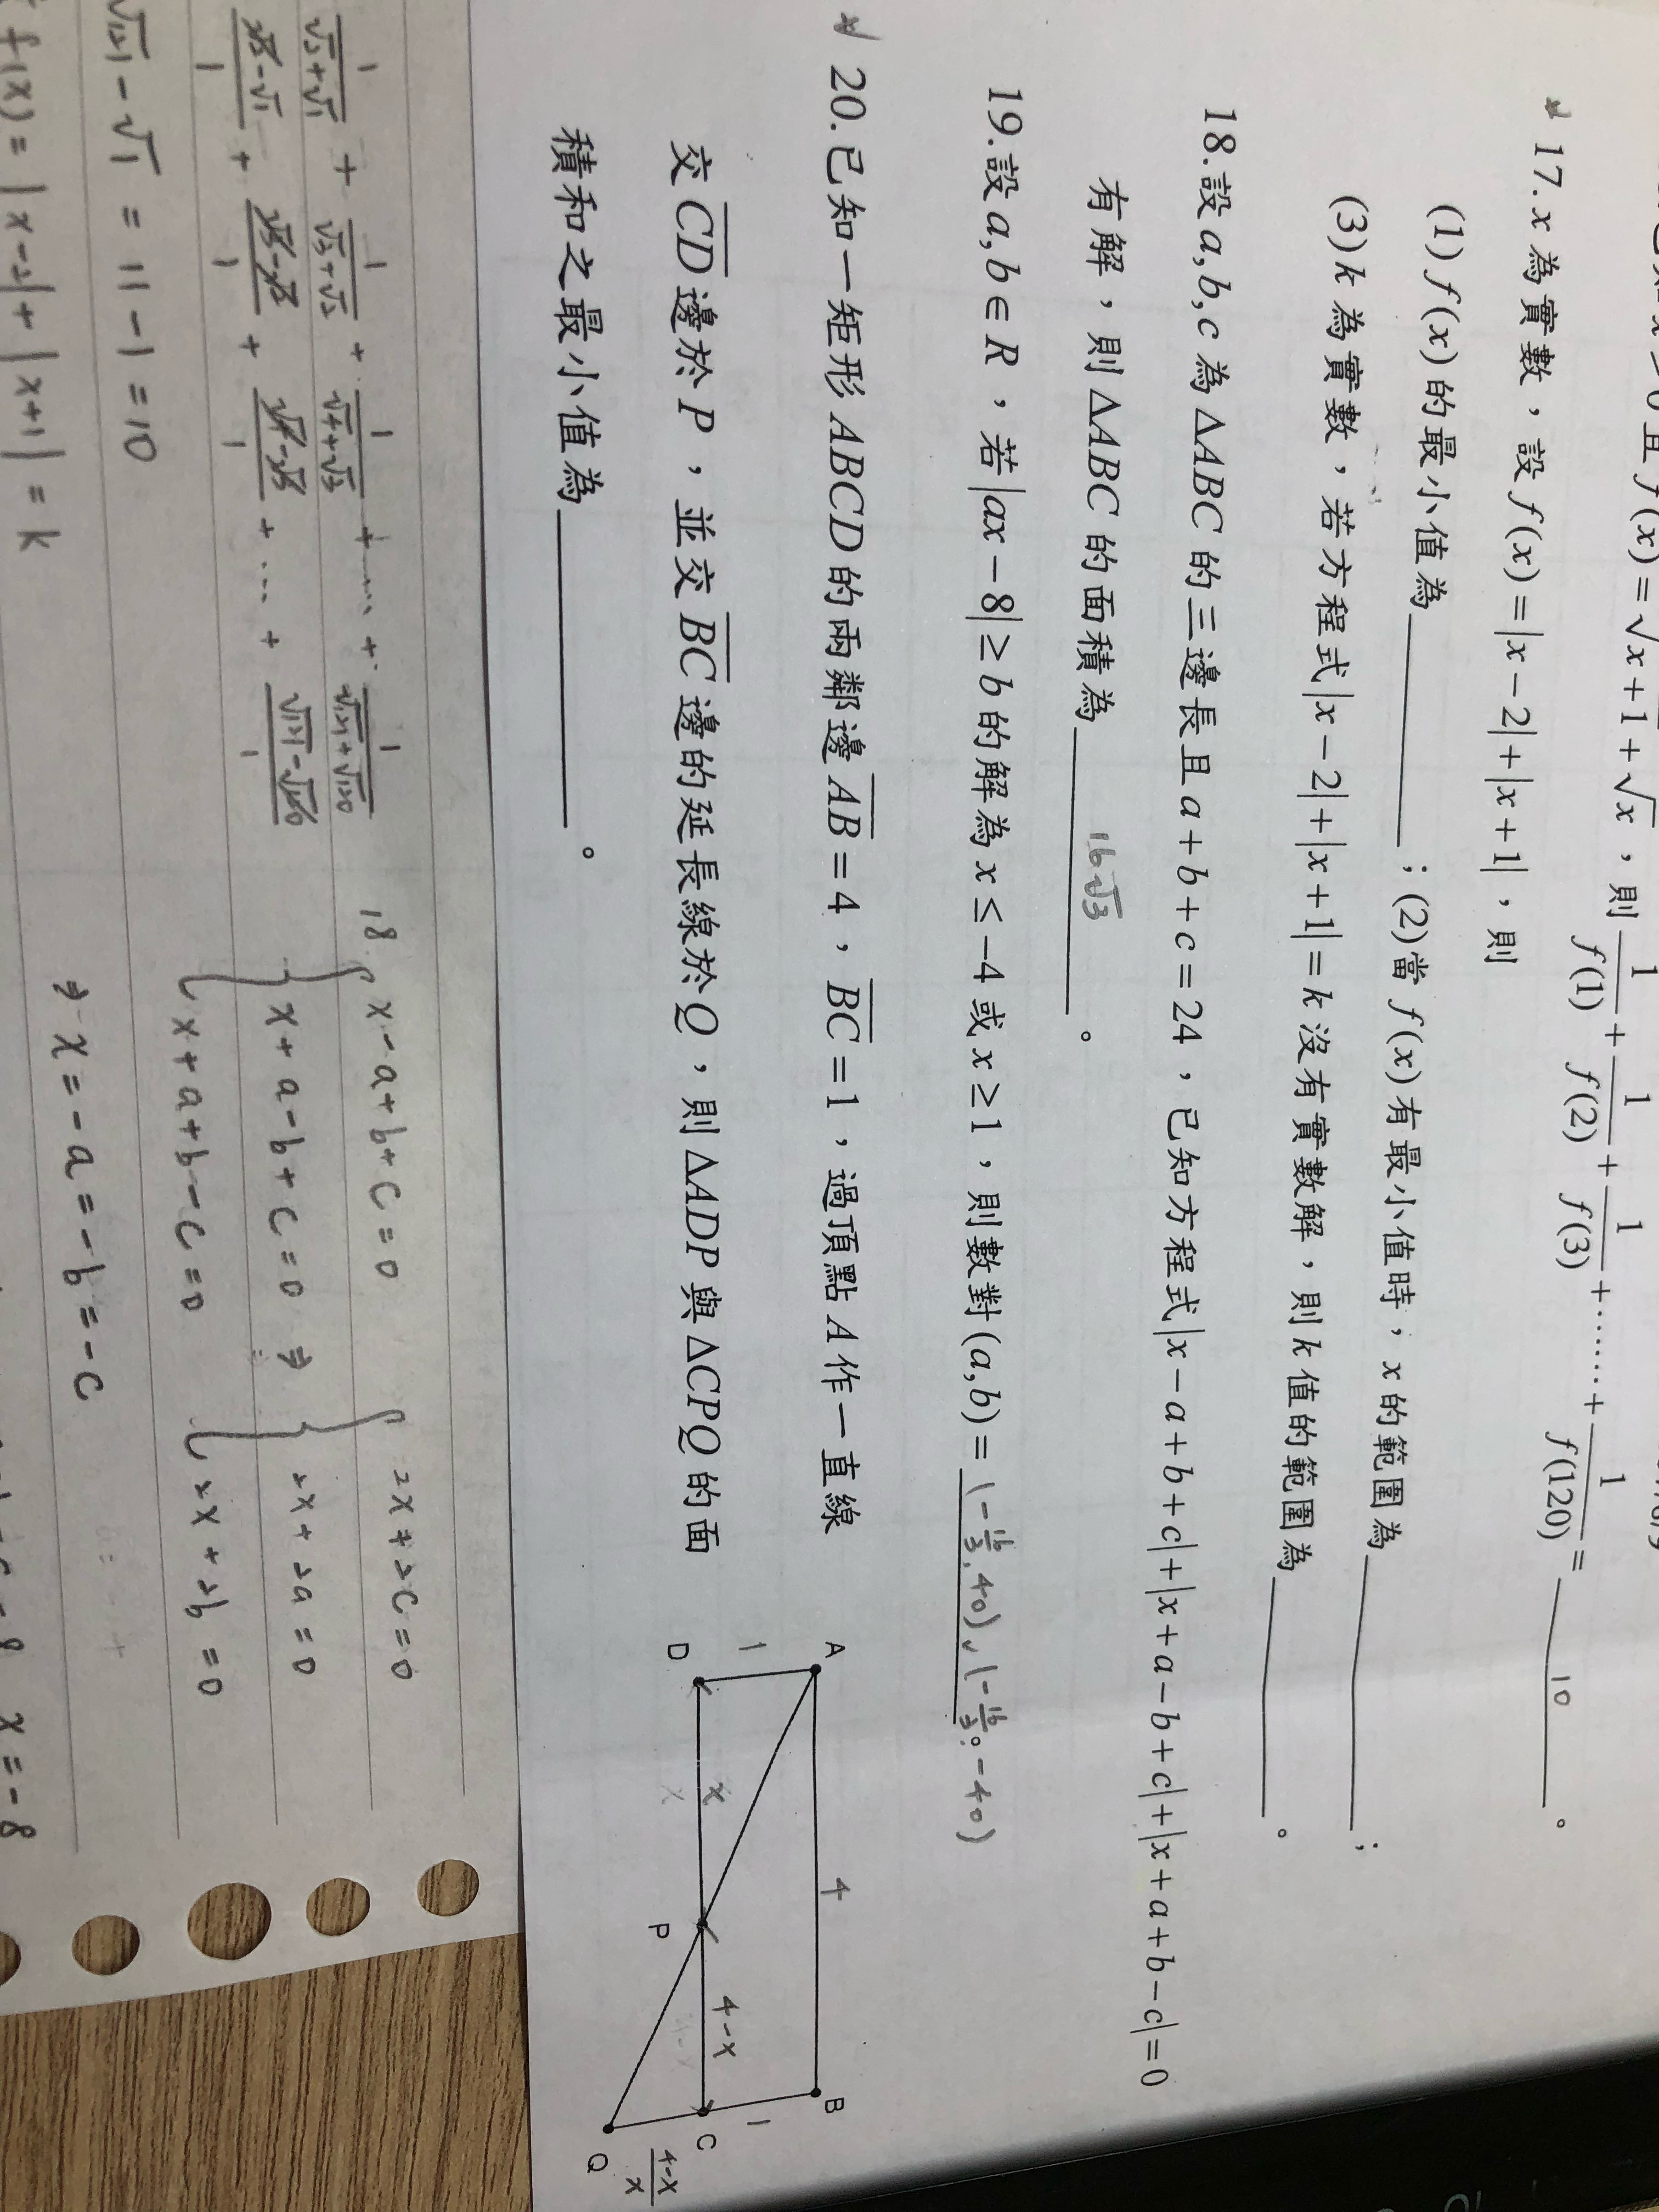 x > 0 且 f(x) = √x+1 + √x ，則 1/f(1) + 1/f(2) + 1/f(3) + ⋯⋯ + 1/f(120) = 10 。
17. x 為實數，設 f(x) = |x−2| + |x+1| ，則
(1) f(x) 的最小值為 ______ ；(2)當 f(x) 有最小值時，x 的範圍為 ______ ；
(3) k 為實數，若方程式 |x−2| + |x+1| = k 沒有實數解，則 k 值的範圍為 ______ 。
18. 設 a,b,c 為 △ABC 的三邊長且 a+b+c=24 ，已知方程式 |x−a+b+c| + |x+a−b+c| + |x+a+b−c| = 0
有解，則 △ABC 的面積為 16√3 。
19. 設 a,b∈R ，若 |ax−8| ≥ b 的解為 x ≤ −4 或 x ≥ 1 ，則數對 (a,b) = (-16/3, 40), (-16/3, -40)
20. 已知一矩形 ABCD 的兩鄰邊 AB = 4 ，BC = 1 ，過頂點 A 作一直線
交 CD 邊於 P ，並交 BC 邊的延長線於 Q ，則 △ADP 與 △CPQ 的面
積和之最小值為 ______ 。
A 4 B
1 1
D x P 4-x C
Q (4-x)/x
1/(√2+√1) + 1/(√3+√2) + 1/(√4+√3) + ⋯ + 1/(√121+√120)
(√2-√1)/1 + (√3-√2)/1 + (√4-√3)/1 + ⋯ + (√121-√120)/1
√121 - √1 = 11 - 1 = 10
f(x) = |x-2| + |x+1| = k
18.
x-a+b+c=0
x+a-b+c=0 ⇒
x+a+b-c=0
2x+2c=0
2x+2a=0
2x+2b=0
⇒ x=-a=-b=-c
x=-8